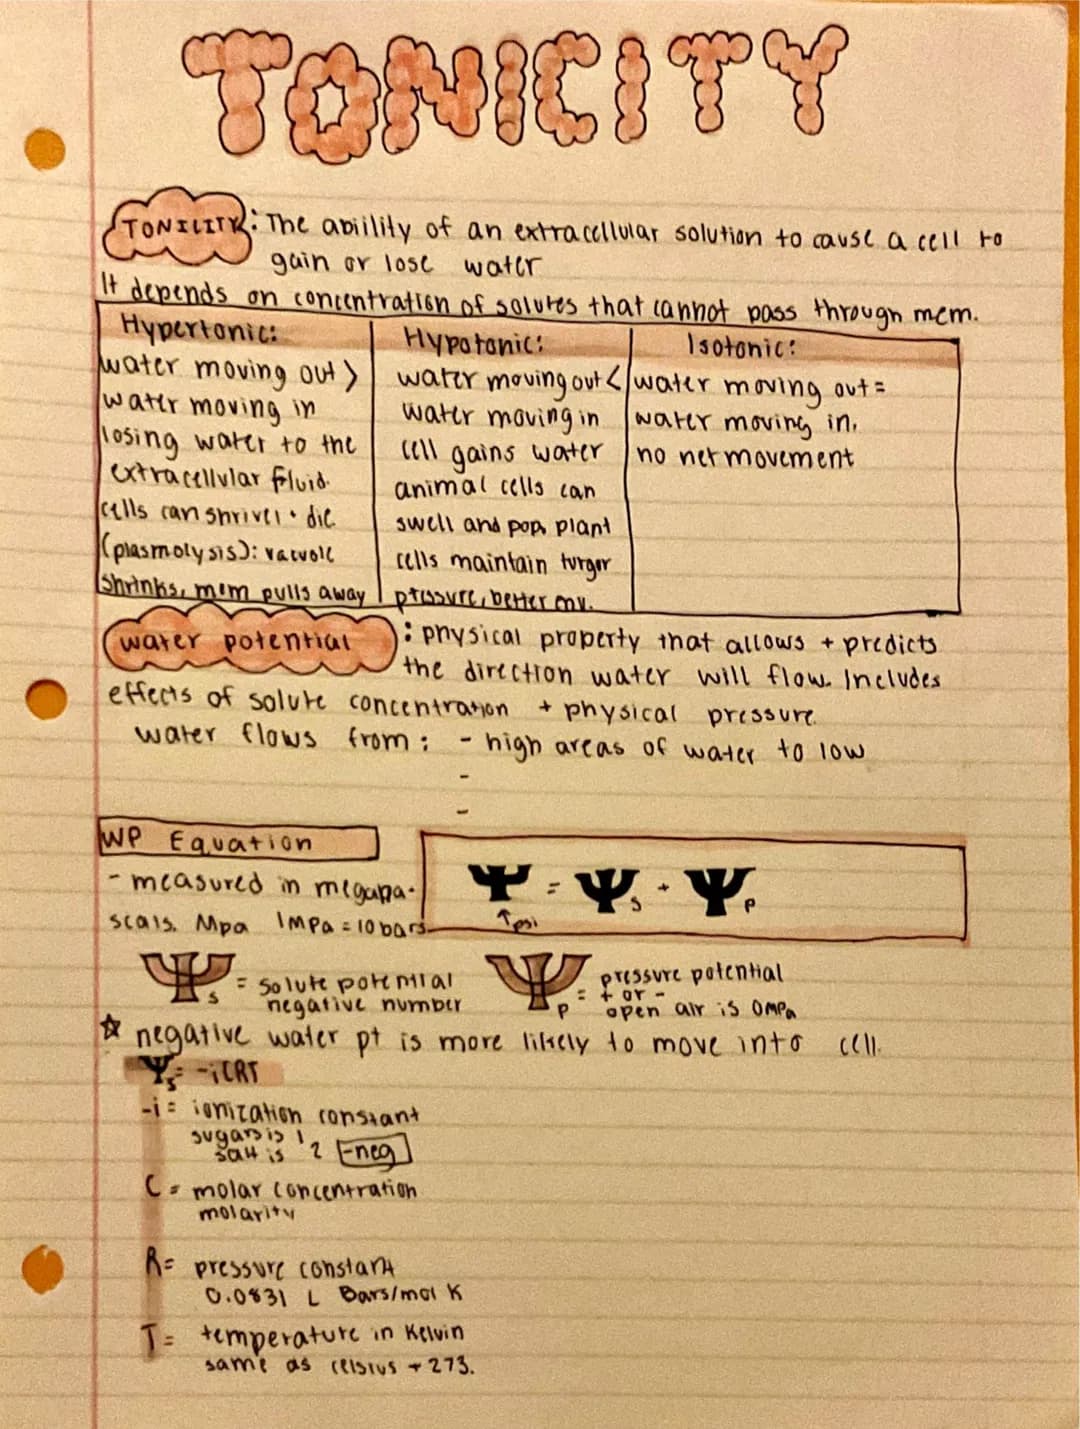 TONICITY
TONICITY: The abiility of an extracellular solution to cause a cell to
gain or lose water
It depends on concentration of solutes that cannot pass through mem.
Hypertonic:
water moving out >
water moving in
losing water to the
extracellular fluid.
cells can shrivel + die
(plasmolysis): vacuole
shrinks, mem pulls away
Hypotonic:
water moving out <
water moving in
cell gains water
animal cells can
swell and pop, plant
cells maintain turgor
pressure, better env.
Isotonic:
water moving out =
water moving in,
no net movement
water potential: physical property that allows + predicts
the direction water will flow. Includes
effects of solute concentration + physical pressure.
water flows from: - high areas of water to low
-
-
WP Equation
- measured in megapa-
scals. Mpa 1MPa = 10 bars
Ψ = Ψs + Ψp
↑psi
Ψs = solute potential
negative number
Ψp = pressure potential
+ or -
open air is 0MPa
☆ negative water pt is more likely to move into cell.
Ψs = -iCRT
-i = ionization constant
sugars is 1
salt is 2 -neg
C = molar concentration
molarity
R = pressure constant
0.0831 L Bars/mol K
T = temperature in Kelvin
same as celsius + 273.